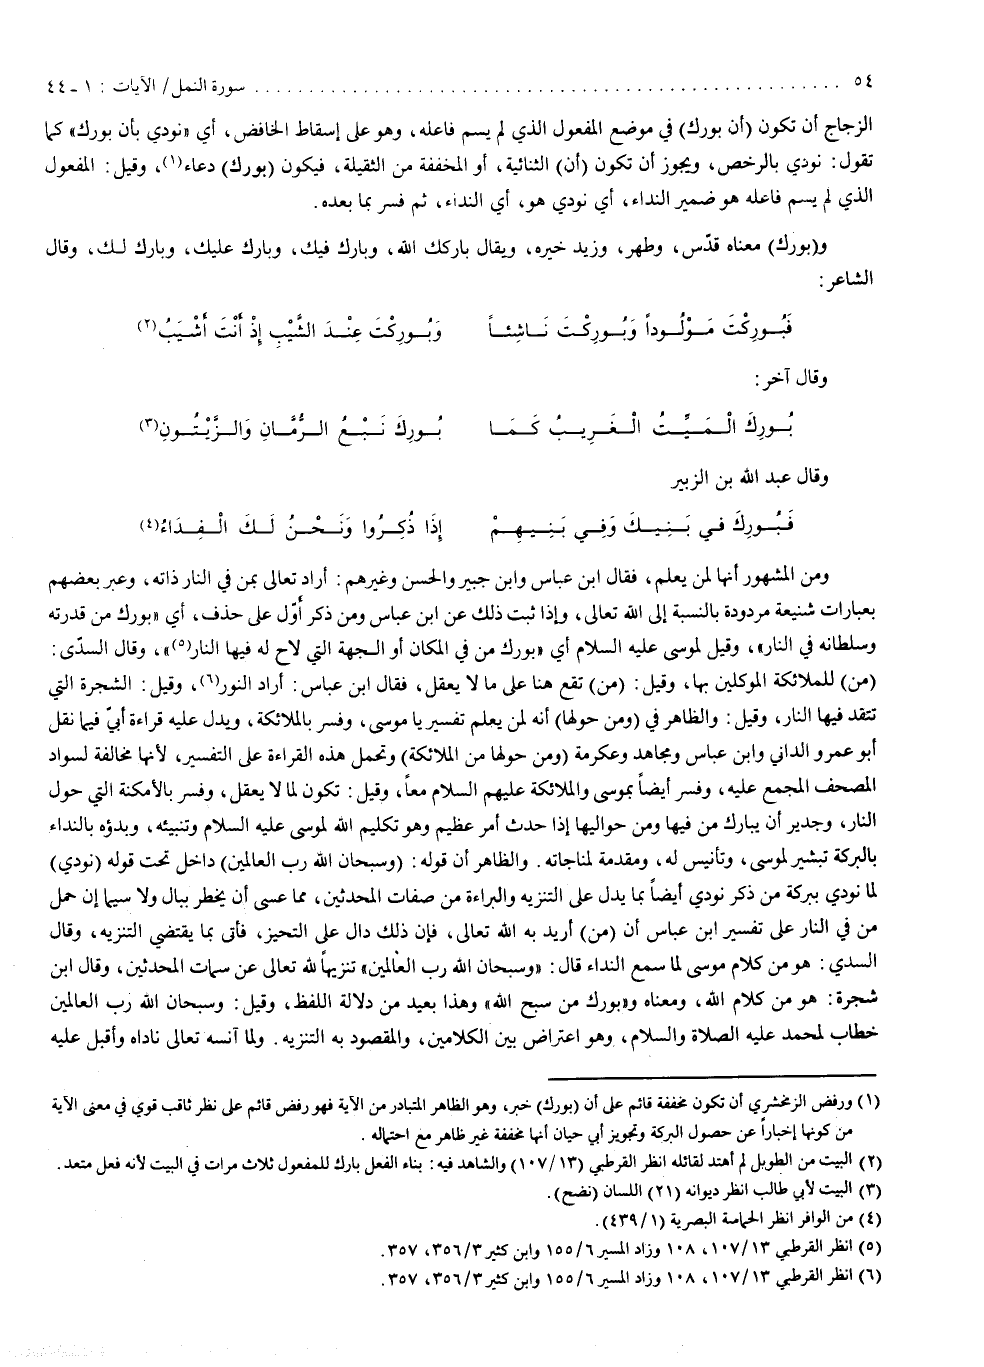 ٥٤ . . . . . . . . . . . . . . . . . . . . . . . . . . . . . . . . . . . . . . . . . . . . . . . . . . . . . . . . سورة النمل / الآيات : ١ - ٤٤
الزجاج أن تكون (أن بورك) في موضع المفعول الذي لم يسم فاعله، وهو على إسقاط الخافض، أي «نودي بأن بورك» كما
تقول: نودي بالرخص، ويجوز أن تكون (أن) الثنائية، أو المخففة من الثقيلة، فيكون (بورك) دعاء(١)، وقيل: المفعول
الذي لم يسم فاعله هو ضمير النداء، أي نودي هو، أي النداء، ثم فسر بما بعده.
و(بورك) معناه قدّس، وطهر، وزيد خيره، ويقال باركك الله، وبارك فيك، وبارك عليك، وبارك لك، وقال
الشاعر:
فَبُورِكْتَ مَوْلُوداً وَبُورِكْتَ نَاشِئاً وَبُورِكْتَ عِنْدَ الشَّيْبِ إِذْ أَنْتَ أَشْيَبُ(٢)
وقال آخر:
بُورِكَ الْمَيِّتُ الْغَرِيبُ كَمَا بُورِكَ نَبْعُ الرُّمَّانِ وَالزَّيْتُونِ(٣)
وقال عبد الله بن الزبير
فَبُورِكَ في بَنِيكَ وَفِي بَنِيهِمْ إِذَا ذُكِرُوا وَنَحْنُ لَكَ الْفِدَاءُ(٤)
ومن المشهور أنها لمن يعلم، فقال ابن عباس وابن جبير والحسن وغيرهم: أراد تعالى بمن في النار ذاته، وعبر بعضهم
بعبارات شنيعة مردودة بالنسبة إلى الله تعالى، وإذا ثبت ذلك عن ابن عباس ومن ذكر أوّل على حذف، أي «بورك من قدرته
وسلطانه في النار»، وقيل لموسى عليه السلام أي «بورك من في المكان أو الجهة التي لاح له فيها النار(٥)»، وقال السدّى:
(من) للملائكة الموكلين بها، وقيل: (من) تقع هنا على ما لا يعقل، فقال ابن عباس: أراد النور(٦)، وقيل: الشجرة التي
تتقد فيها النار، وقيل: والظاهر في (ومن حولها) أنه لمن يعلم تفسير يا موسى، وفسر بالملائكة، ويدل عليه قراءة أبيّ فيما نقل
أبو عمرو الداني وابن عباس ومجاهد وعكرمة (ومن حولها من الملائكة) وتحمل هذه القراءة على التفسير، لأنها مخالفة لسواد
المصحف المجمع عليه، وفسر أيضاً بموسى والملائكة عليهم السلام معاً، وقيل: تكون لما لا يعقل، وفسر بالأمكنة التي حول
النار، وجدير أن يبارك من فيها ومن حواليها إذا حدث أمر عظيم وهو تكليم الله لموسى عليه السلام وتنبيئه، وبدؤه بالنداء
بالبركة تبشير لموسى، وتأنيس له، ومقدمة لمناجاته. والظاهر أن قوله: (وسبحان الله رب العالمين) داخل تحت قوله (نودي)
لما نودي ببركة من ذكر نودي أيضاً بما يدل على التنزيه والبراءة من صفات المحدثين، مما عسى أن يخطر ببال ولا سيما إن حمل
من في النار على تفسير ابن عباس أن (من) أريد به الله تعالى، فإن ذلك دال على التحيز، فأتى بما يقتضي التنزيه، وقال
السدي: هو من كلام موسى لما سمع النداء قال: «وسبحان الله رب العالمين» تنزيهاً لله تعالى عن سمات المحدثين، وقال ابن
شجرة: هو من كلام الله، ومعناه و«بورك من سبح الله» وهذا بعيد من دلالة اللفظ، وقيل: وسبحان الله رب العالمين
خطاب لمحمد عليه الصلاة والسلام، وهو اعتراض بين الكلامين، والمقصود به التنزيه. ولما آنسه تعالى ناداه وأقبل عليه
(١) ورفض الزمخشري أن تكون مخففة قائم على أن (بورك) خبر، وهو الظاهر المتبادر من الآية فهو رفض قائم على نظر ثاقب قوي في معنى الآية
من كونها إخباراً عن حصول البركة وتجويز أبي حيان أنها مخففة غير ظاهر مع احتماله .
(٢) البيت من الطويل لم أهتد لقائله انظر القرطبي (١٣/ ١٠٧) والشاهد فيه: بناء الفعل بارك للمفعول ثلاث مرات في البيت لأنه فعل متعد.
(٣) البيت لأبي طالب انظر ديوانه (٢١) اللسان (نضح).
(٤) من الوافر انظر الحماسة البصرية (١/ ٤٣٩).
(٥) انظر القرطبي ١٣/ ١٠٧، ١٠٨ وزاد المسير ٦/ ١٥٥ وابن كثير ٣/ ٣٥٦، ٣٥٧.
(٦) انظر القرطبي ١٣/ ١٠٧، ١٠٨ وزاد المسير ٦/ ١٥٥ وابن كثير ٣/ ٣٥٦، ٣٥٧.